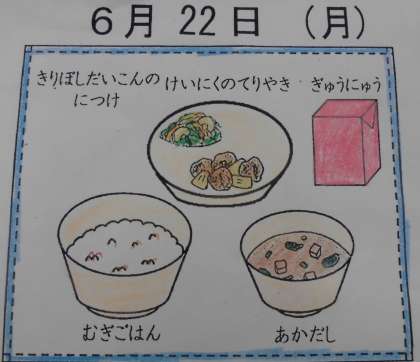 6月 22日 (月)
きりぼしだいこんの
につけ
けいにくのてりやき
ぎゅうにゅう
むぎごはん
あかだし